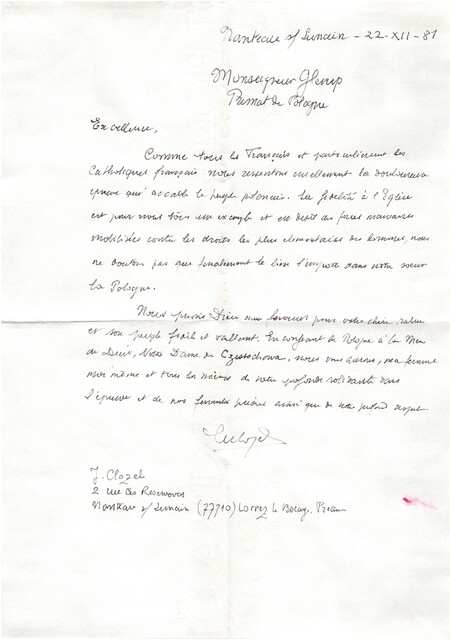 Nanteau s/ Lunain - 22-XII-81
Monseigneur Glemp
Primat de Pologne
Excellence,
Comme tous les Français et particulièrement les
Catholiques français nous ressentons cruellement la douloureuse
épreuve qui accable le peuple polonais. Sa fidélité à l'Eglise
est pour nous tous un exemple et en dépit des forces mauvaises
mobilisées contre les droits les plus élémentaires des hommes, nous
ne doutons pas que finalement le bien l'emporte dans notre soeur
la Pologne.
Nous prions Dieu avec ferveur pour votre chère patrie
et son peuple fidèle et vaillant. En confiant la Pologne à la Mère
de Dieu, Notre Dame de Czestochowa, nous vous assurons, ma femme
moi même et tous les miens de notre profonde solidarité dans
l'épreuve et de nos ferventes prières ainsi que de notre profond respect
J. Clozel
2 rue des Reservoirs
Nanteau s/ Lunain (77710) Lorrez le Bocage. Preaux